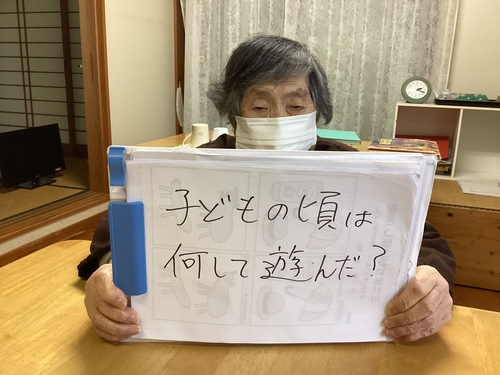 子どもの頃は
何して遊んだ？